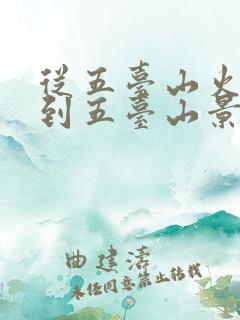 從五臺山火
到五臺山景
曲建濤
未经同意禁止转载